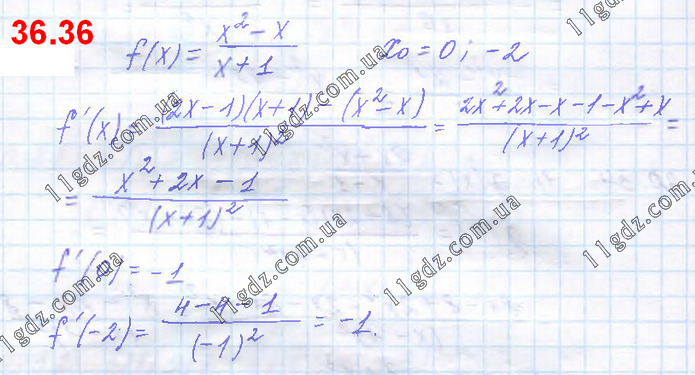 36.36
f(x) = (x² - x)/(x + 1) x₀ = 0; -2
f'(x) = ((2x - 1)(x + 1) - (x² - x))/(x + 1)² = (2x² + 2x - x - 1 - x² + x)/(x + 1)² =
= (x² + 2x - 1)/(x + 1)²
f'(0) = -1
f'(-2) = (4 - 4 - 1)/(-1)² = -1.
11gdz.com.ua
11gdz.com.ua
11gdz.com.ua
11gdz.com.ua
11gdz.com.ua
11gdz.com.ua
11gdz.com.ua